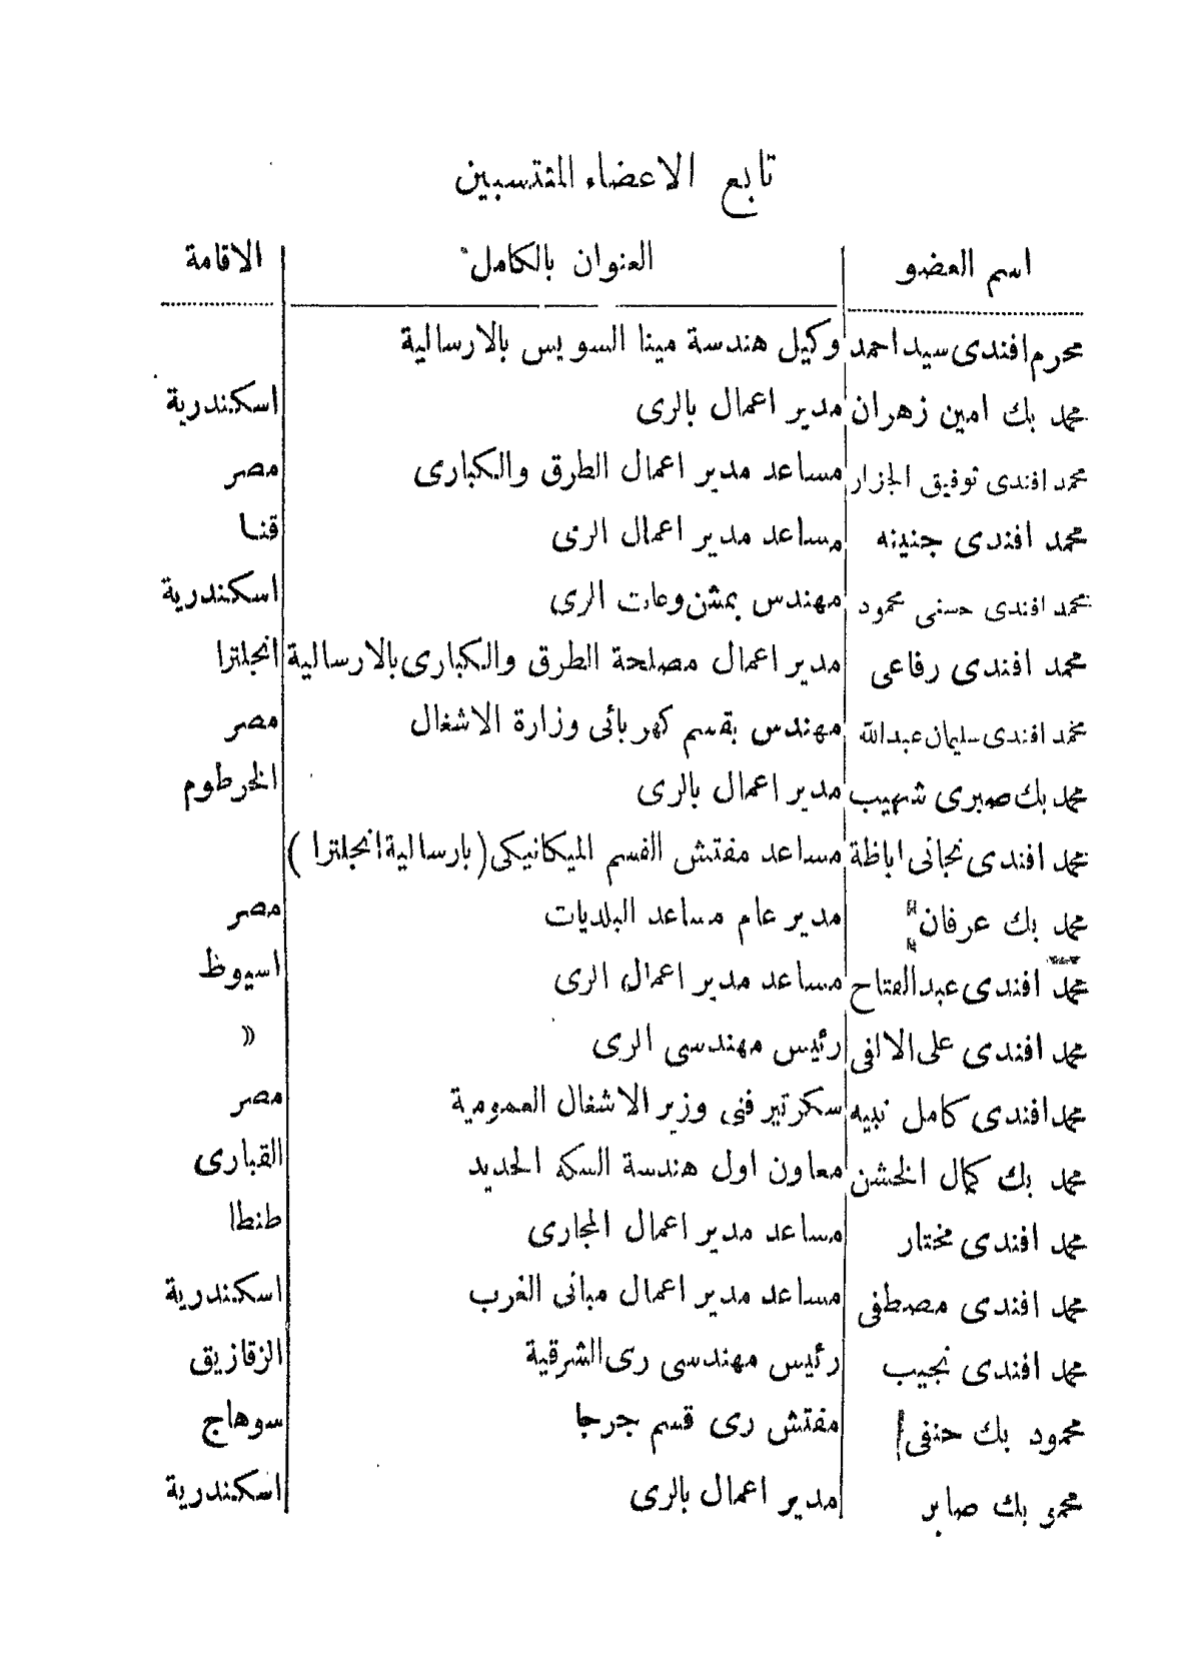 تابع الاعضاء المنتسبين
اسم العضو العنوان بالكامل الاقامة
محرم افندى سيد احمد وكيل هندسة مينا السويس بالارسالية
محمد بك امين زهران مدير اعمال بالرى اسكندرية
محمد افندى توفيق الجزار مساعد مدير اعمال الطرق والكبارى مصر
محمد افندى جنينه مساعد مدير اعمال الرى قنا
محمد افندى حسنى محمود مهندس بمشروعات الرى اسكندرية
محمد افندى رفاعى مدير اعمال مصلحة الطرق والكبارى بالارسالية انجلترا
محمد افندى سليمان عبدالله مهندس بقسم كهربائى وزارة الاشغال مصر
محمد بك صبرى شهيب مدير اعمال بالرى الخرطوم
محمد افندى نجاتى اباظة مساعد مفتش القسم الميكانيكى (بارسالية انجلترا)
محمد بك عرفان مدير عام مساعد البلديات مصر
محمد افندى عبدالفتاح مساعد مدير اعمال الرى اسيوط
محمد افندى على الالفى رئيس مهندسى الرى »
محمد افندى كامل نبيه سكرتير فنى وزير الاشغال العمومية مصر
محمد بك كمال الخشن معاون اول هندسة السكه الحديد القبارى
محمد افندى مختار مساعد مدير اعمال المجارى طنطا
محمد افندى مصطفى مساعد مدير اعمال مبانى الغرب اسكندرية
محمد افندى نجيب رئيس مهندسى رى الشرقية الزقازيق
محمود بك حنفى مفتش رى قسم جرجا سوهاج
بك صابر مدير اعمال بالرى اسكندرية